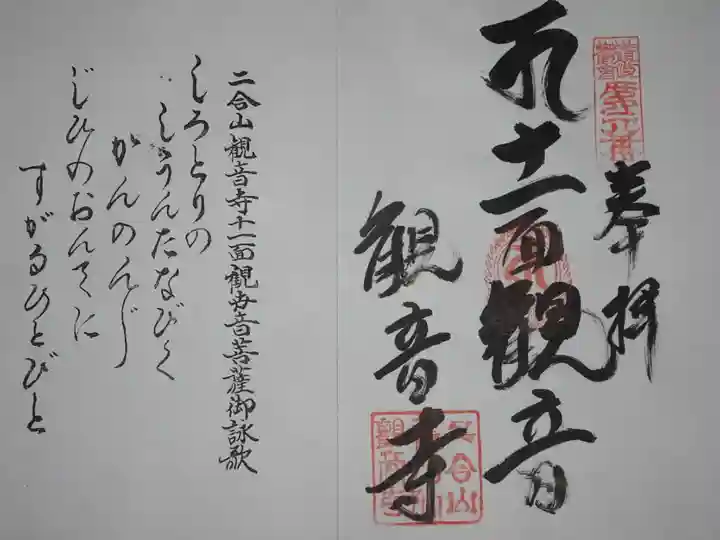 奉拝
十一面観音
観音寺
二合山
二合山観音寺十一面観世音菩薩御詠歌
しろとりの
しうんたなびく
かんのんじ
じひのおんてに
すがるひとびと